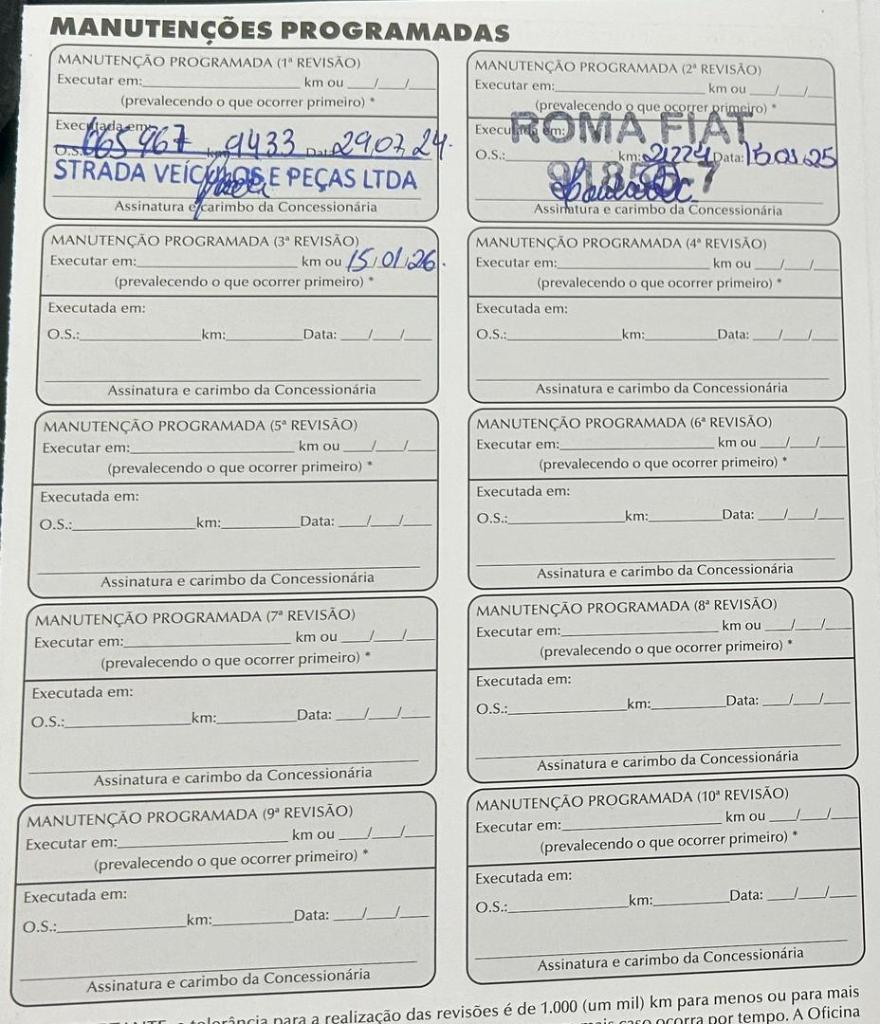 MANUTENÇÕES PROGRAMADAS
MANUTENÇÃO PROGRAMADA (1ª REVISÃO)
Executar em:____ km ou __/__/__
(prevalecendo o que ocorrer primeiro) *
Executada em:
O.S.: 665967 km: 9433 Data: 29.07.24.
STRADA VEÍCULOS E PEÇAS LTDA
Assinatura e carimbo da Concessionária
MANUTENÇÃO PROGRAMADA (2ª REVISÃO)
Executar em:____ km ou __/__/__
(prevalecendo o que ocorrer primeiro) *
ROMA FIAT
Executada em:
O.S.:____ km: 21224 Data: 15.01.25
91850-7
Assinatura e carimbo da Concessionária
MANUTENÇÃO PROGRAMADA (3ª REVISÃO)
Executar em:____ km ou 15/01/26.
(prevalecendo o que ocorrer primeiro) *
Executada em:
O.S.:____ km:____ Data: __/__/__
Assinatura e carimbo da Concessionária
MANUTENÇÃO PROGRAMADA (4ª REVISÃO)
Executar em:____ km ou __/__/__
(prevalecendo o que ocorrer primeiro) *
Executada em:
O.S.:____ km:____ Data: __/__/__
Assinatura e carimbo da Concessionária
MANUTENÇÃO PROGRAMADA (5ª REVISÃO)
Executar em:____ km ou __/__/__
(prevalecendo o que ocorrer primeiro) *
Executada em:
O.S.:____ km:____ Data: __/__/__
Assinatura e carimbo da Concessionária
MANUTENÇÃO PROGRAMADA (6ª REVISÃO)
Executar em:____ km ou __/__/__
(prevalecendo o que ocorrer primeiro) *
Executada em:
O.S.:____ km:____ Data: __/__/__
Assinatura e carimbo da Concessionária
MANUTENÇÃO PROGRAMADA (7ª REVISÃO)
Executar em:____ km ou __/__/__
(prevalecendo o que ocorrer primeiro) *
Executada em:
O.S.:____ km:____ Data: __/__/__
Assinatura e carimbo da Concessionária
MANUTENÇÃO PROGRAMADA (8ª REVISÃO)
Executar em:____ km ou __/__/__
(prevalecendo o que ocorrer primeiro) *
Executada em:
O.S.:____ km:____ Data: __/__/__
Assinatura e carimbo da Concessionária
MANUTENÇÃO PROGRAMADA (9ª REVISÃO)
Executar em:____ km ou __/__/__
(prevalecendo o que ocorrer primeiro) *
Executada em:
O.S.:____ km:____ Data: __/__/__
Assinatura e carimbo da Concessionária
MANUTENÇÃO PROGRAMADA (10ª REVISÃO)
Executar em:____ km ou __/__/__
(prevalecendo o que ocorrer primeiro) *
Executada em:
O.S.:____ km:____ Data: __/__/__
Assinatura e carimbo da Concessionária
tolerância para a realização das revisões é de 1.000 (um mil) km para menos ou para mais
caso ocorra por tempo. A Oficina